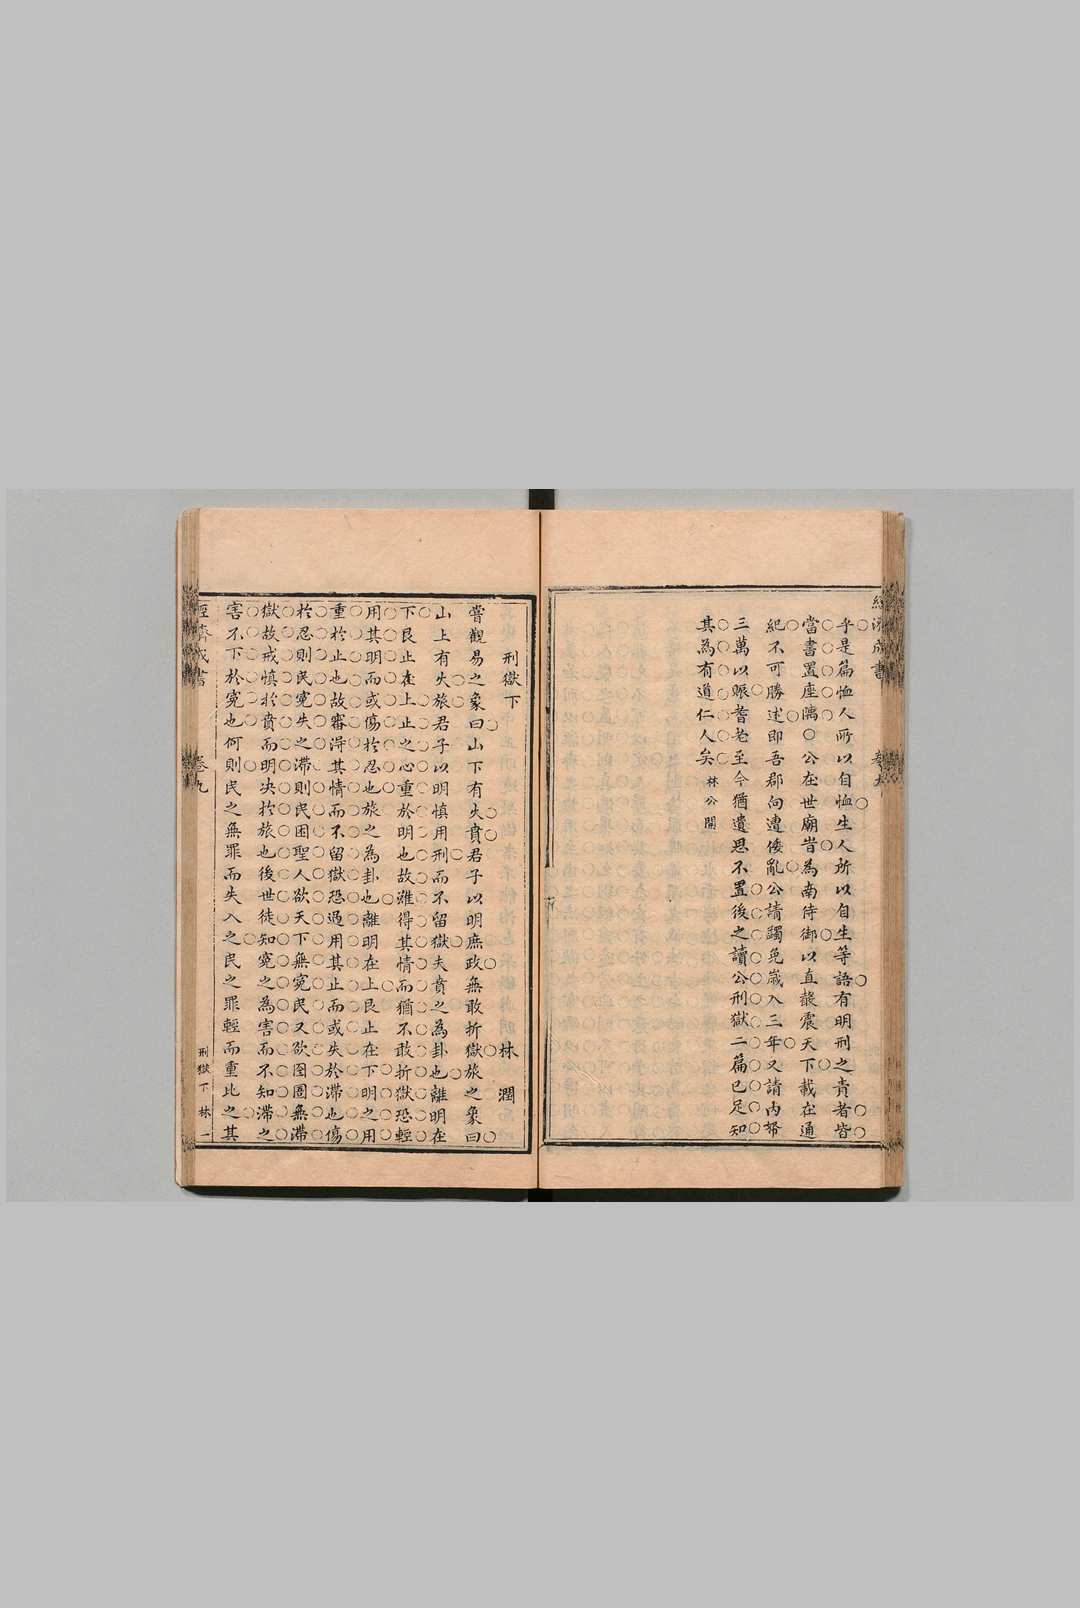 乎是篇恤人所以自恤生人所以自生等語有明刑之責者皆
當書置座隅○公在世廟旹為南侍御以直聲震天下載在通
紀不可勝述即吾郡向遭倭亂公請蠲免歲入三年又請內帑
三萬以賑耆老至今猶遺思不置後之讀公刑獄二篇已足知
其為有道仁人矣 林公開
刑獄下
林 潤
嘗觀易之象曰山下有火賁君子以明庶政無敢折獄旅之象曰
山上有火旅君子以明慎用刑而不留獄夫賁之為卦也離明在
下艮止在上止之心重於明也故雖得其情而猶不敢折獄恐輕
用其明而或傷於忍也旅之為卦也離明在上艮止在下明之用
重於止也故審得其情而不留獄恐過用其止而或失於滯也傷
於忍則民冤失之滯則民困聖人欲天下無冤民又欲囹圄無滯
獄故戒慎於賁而明決於旅也後世徒知冤之為害而不知滯之
害不下於冤也何則民之無罪而失入之民之罪輕而重比之其
經濟成書 卷九 刑獄下 林 一